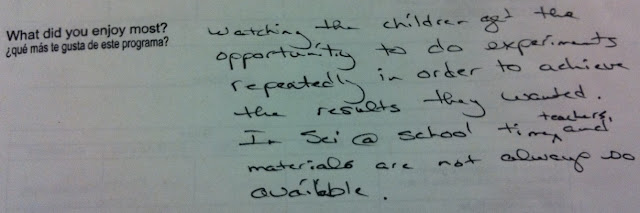 What did you enjoy most?
¿qué más te gusta de este programa?
Watching the children get the
opportunity to do experiments
repeatedly in order to achieve
the results they wanted.
In Sci @ school time, teachers, and
materials are not always so
available.